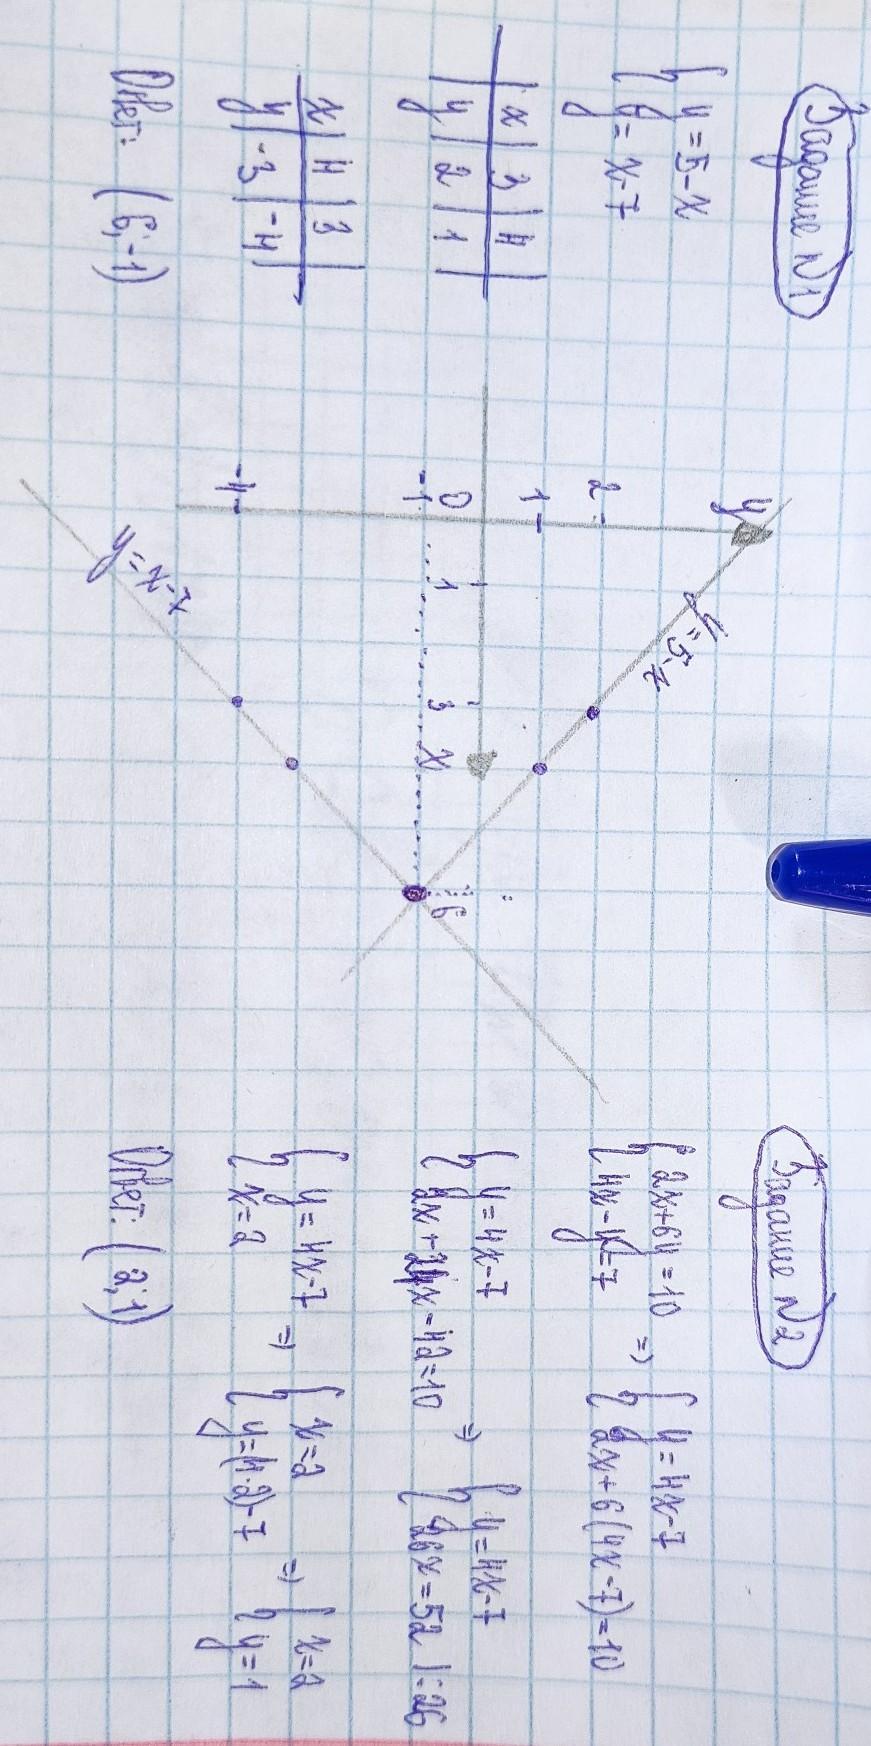 Задание N1
{ y = 5-x
y = x-7
x | 3 | 4
y | 2 | 1
x | 4 | 3
y | -3 | -4
Ответ: (6;-1)
y
2
1
0
-1
-4
1
3
x
6
y=5-x
y=x-7
Задание N2
{ 2x+6y=10
4x-y=7 => { y=4x-7
2x+6(4x-7)=10
{ y=4x-7
2x+24x-42=10 => { y=4x-7
26x=52 |:26
{ y=4x-7
x=2 => { x=2
y=(4·2)-7 => { x=2
y=1
Ответ: (2;1)